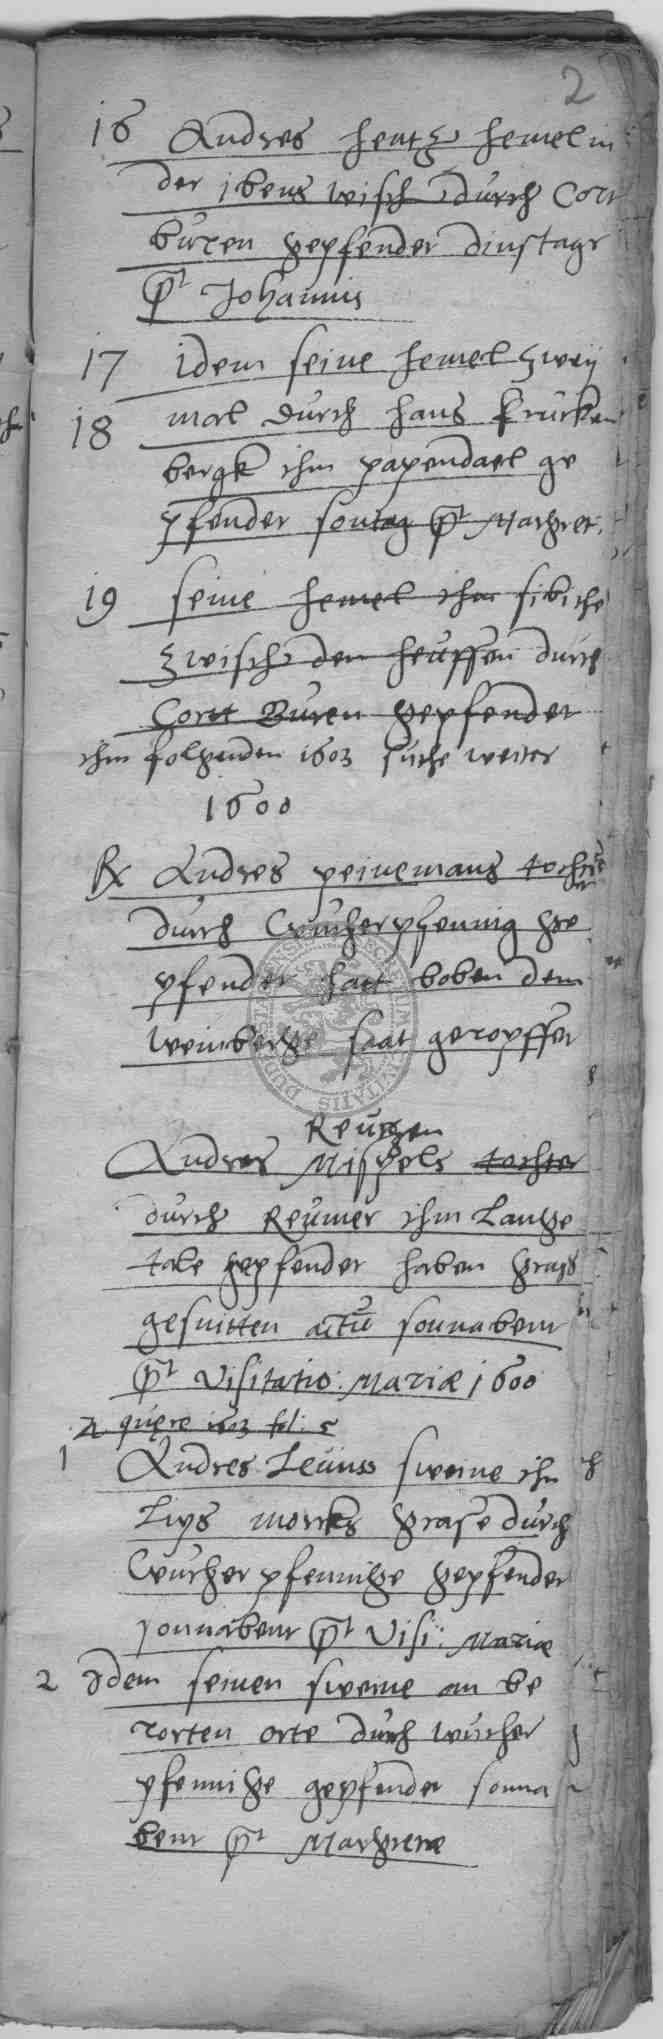 2
16 Andres Hentz hemel in
der ibens wisch durch Cort
buren gepfendet dinstags
pt Johannis
17 idem seine hemel zweӱ
18 mal durch Hans Krucken
bergk ihm papendael ge
pfendet sontag pt Margret:
19 seine hemel ihm
zwischen den heuffen durch
Cort Buren gepfendet
ihm folgenden 1603 suche weiter
1600
Rx Andres peinemans tochter
durch Wucherpfennig ge
pfendet hatt boben dem
weinberge saat geropffet
Reussen
Andres Michels tochter
durch Reumer ihm Lange
tale gepfendet haben grass
gesnitten actu sonnabent
pt Visitatio: Mariæ 1600
quęre 1603 fol: 5
1 Andres Leuns sweine ihn
Lӱs morks grase durch
Wucherpfennige gepfendet
sonnabent pt Visi: Mariæ
2 Idem seinen sweine an be
rorten orte durch wucher
pfennige gepfendet sonna
bent pt Margretæ